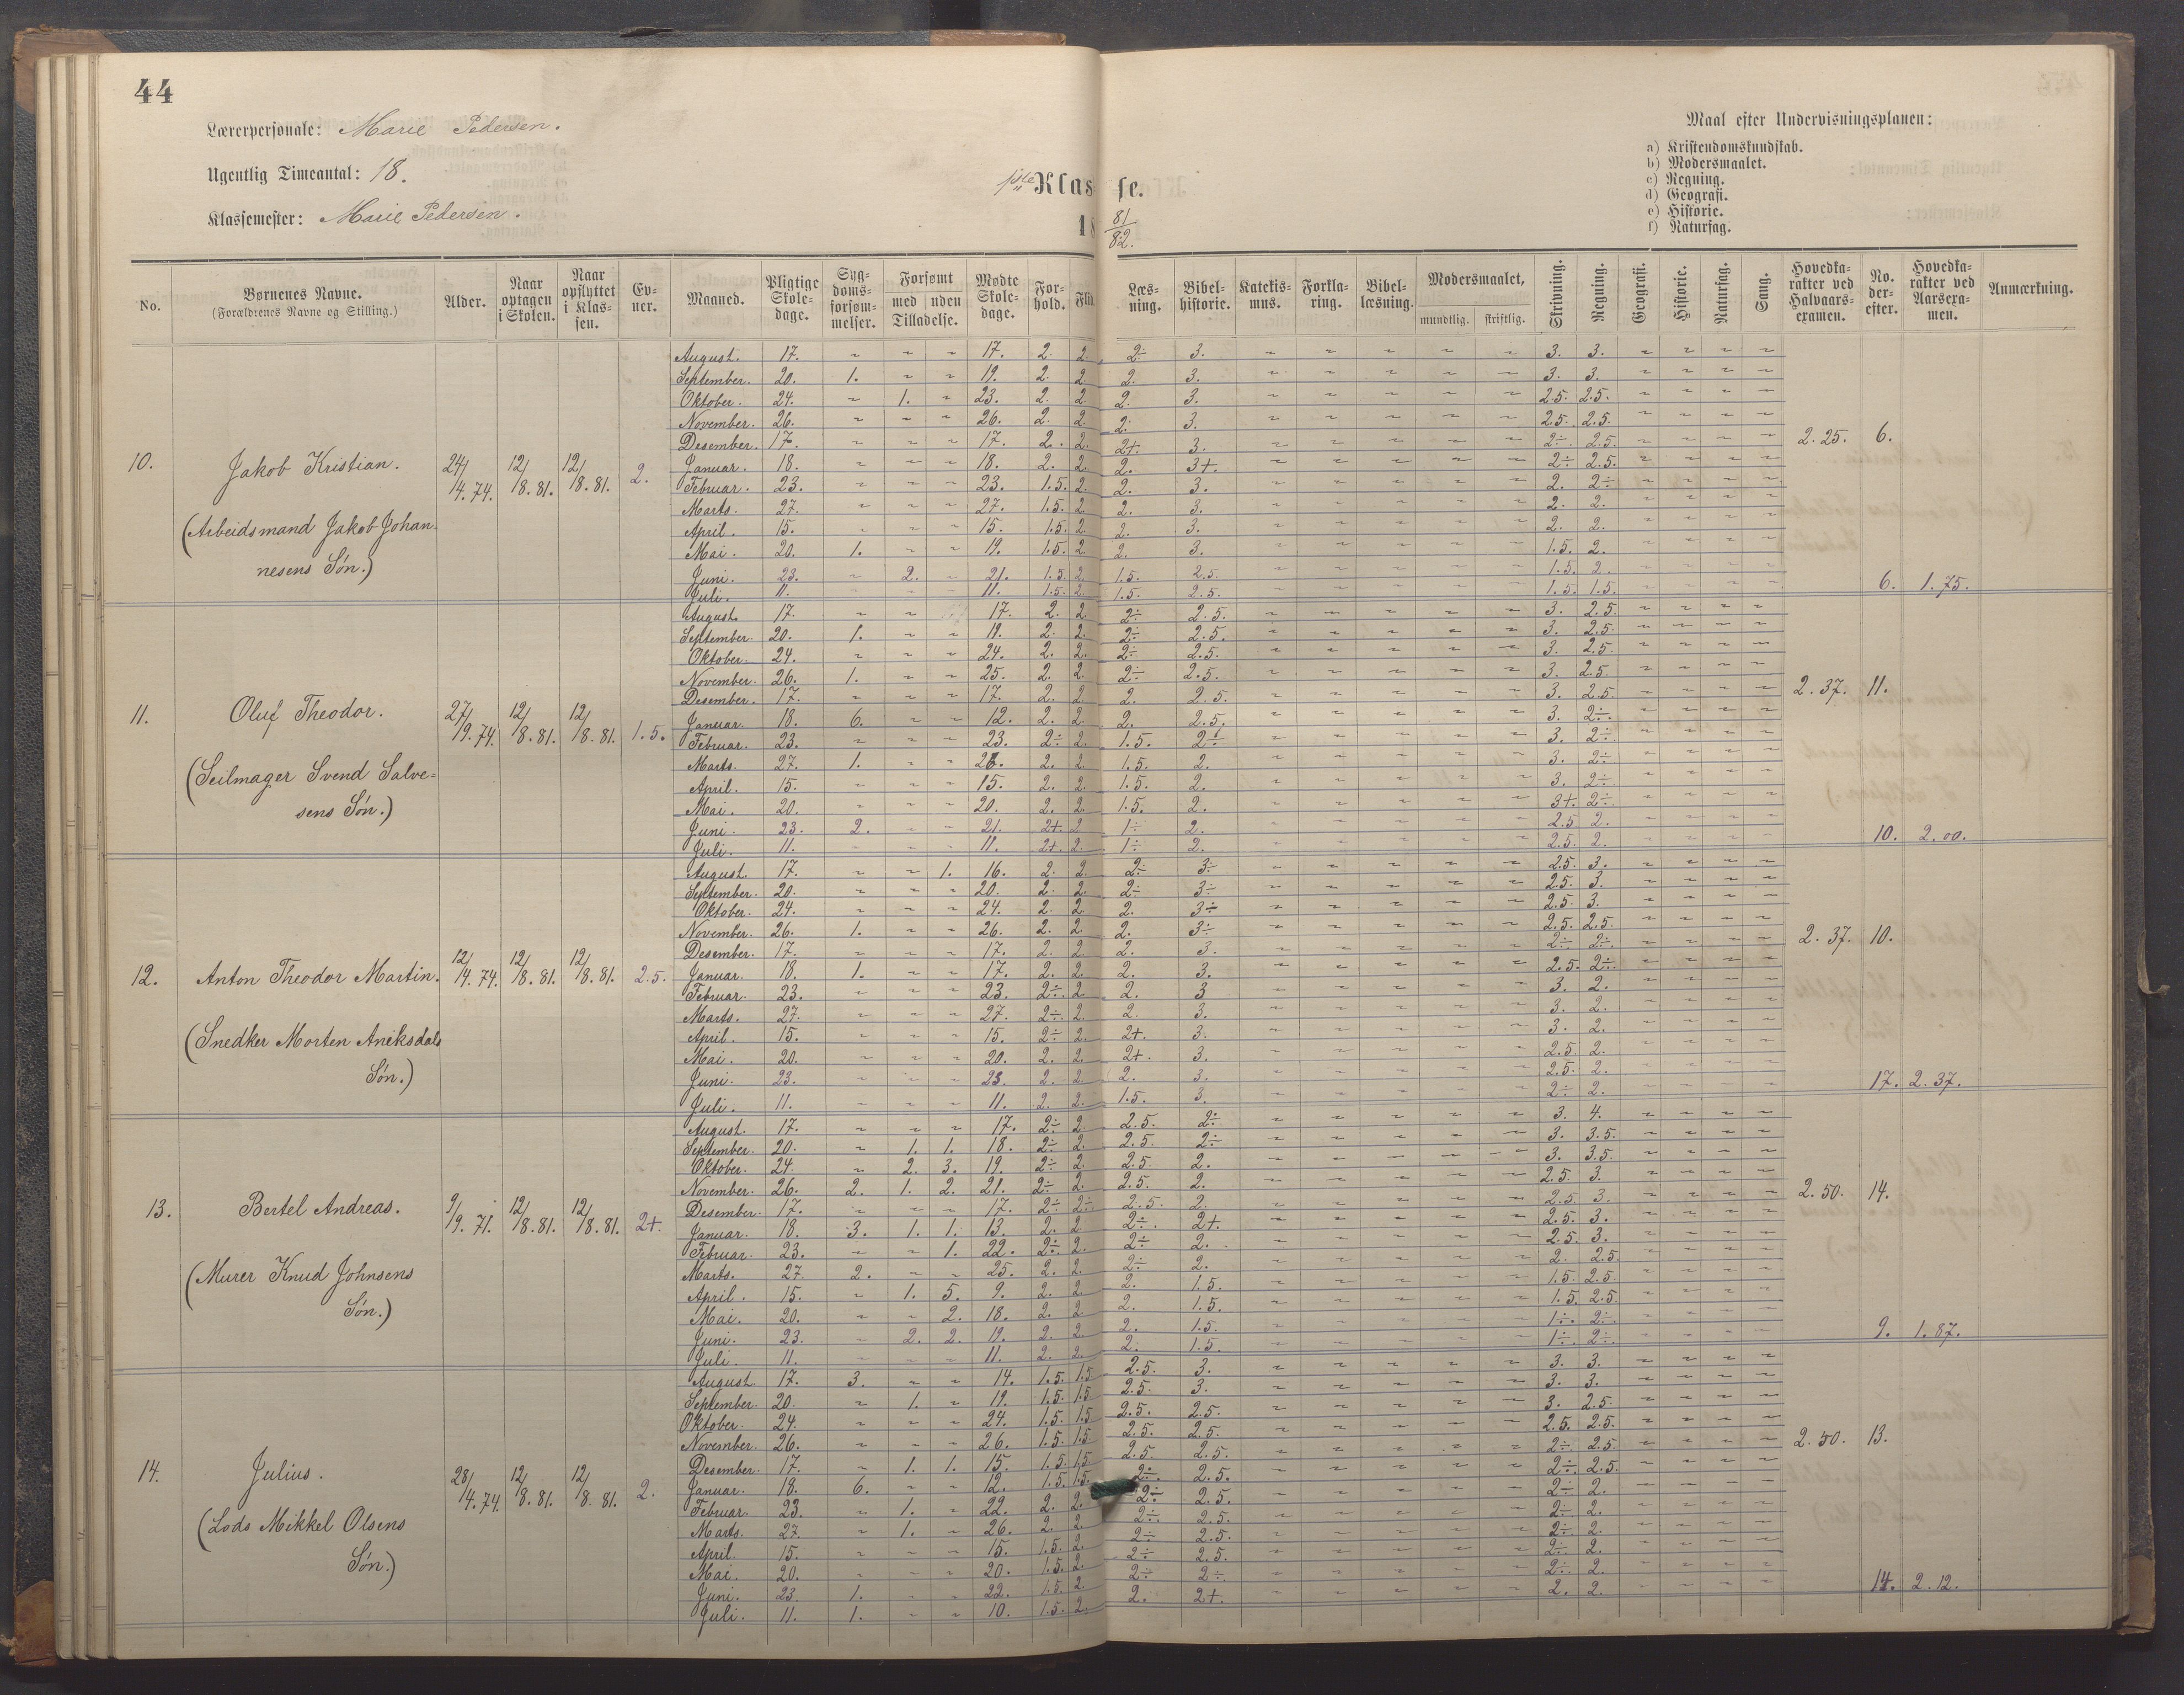 44
Lærerpersonale: Marie Pedersen.
Ugentlig Timeantal: 18.
Klassemester: Marie Pedersen.
1ste Klasse.
18 81/82.
Maal efter Undervisningsplanen:
a) Kristendomskundskab.
b) Modersmaalet.
c) Regning.
d) Geografi.
e) Historie.
f) Naturfag.
No. | Børnenes Navne. (Forældrenes Navne og Stilling.) | Alder. | Naar optagen i Skolen. | Naar opflyttet i Klassen. | Evner. | Maaned. | Pligtige Skoledage. | Sygdomsforsømmelser. | Forsømt med Tilladelse. | uden | Mødte Skoledage. | Forhold. | Flid. | Læsning. | Bibelhistorie. | Katekismus. | Forklaring. | Bibellæsning. | Modersmaalet, mundtlig. | skriftlig. | Skrivning. | Regning. | Geografi. | Historie. | Naturfag. | Sang. | Hovedkarakter ved Halvaarsexamen. | No. derefter. | Hovedkarakter ved Aarsexamen. | Anmærkning.
10. Jakob Kristian. 24/4.74. 12/8.81. 12/8.81. 2. 2.25. 6.
(Arbeidsmand Jakob Johannesens Søn.) 6. 1.75.
August. 17. ~ ~ ~ 17. 2. 2. 2÷ 3. 3. 3.
September. 20. 1. ~ ~ 19. 2. 2. 2. 3. 3. 3.
Oktober. 24. ~ 1. ~ 23. 2. 2. 2. 3. 2.5. 2.5.
November. 26. ~ ~ ~ 26. 2. 2. 2. 3. 2.5. 2.5.
Desember. 17. ~ ~ ~ 17. 2. 2. 2+. 3. 2÷ 2.5.
Januar. 18. ~ ~ ~ 18. 2. 2. 2. 3+. 2÷ 2.5.
Februar. 23. ~ ~ ~ 23. 1.5. 2. 2. 3. 2. 2÷
Marts. 27. ~ ~ ~ 27. 1.5. 2. 2. 3. 2. 2.
April. 15. ~ ~ ~ 15. 1.5. 2. 2. 3. 2. 2.
Mai. 20. 1. ~ ~ 19. 1.5. 2. 2. 3. 1.5. 2.
Juni. 23. ~ 2. ~ 21. 1.5. 2. 1.5. 2.5. 1.5. 2.
Juli. 11. ~ ~ ~ 11. 1.5. 2. 1.5. 2.5. 1.5. 1.5.
11. Oluf Theodor. 27/9.74. 12/8.81. 12/8.81. 1.5. 2.37. 11.
(Seilmager Svend Salvesens Søn.) 10. 2.00.
August. 17. ~ ~ 17. 2. 2. 2÷ 2.5. 3. 2.5.
September. 20. 1. ~ ~ 19. 2. 2. 2÷ 2.5. 3. 2.5.
Oktober. 24. ~ ~ ~ 24. 2. 2. 2÷ 2.5. 3. 2.5.
November. 26. 1. ~ ~ 25. 2. 2. 2÷ 2.5. 3. 2.5.
Desember. 17. ~ ~ ~ 17. 2. 2. 2. 2.5. 3. 2.5.
Januar. 18. 6. ~ ~ 12. 2. 2. 2. 2.5. 3. 2÷
Februar. 23. ~ ~ ~ 23. 2÷ 2. 1.5. 2÷ 3. 2÷
Marts. 27. 1. ~ ~ 26. 2. 2. 1.5. 2. 3. 2÷
April. 15. ~ ~ ~ 15. 2. 2. 1.5. 2. 3. 2÷
Mai. 20. ~ ~ ~ 20. 2. 2. 1.5. 2. 3+. 2÷
Juni. 23. 2. ~ ~ 21. 2+. 2. 1÷ 2. 2.5. 2.
Juli. 11. ~ ~ ~ 11. 2+. 2. 1÷ 2. 2.5. 2.
12. Anton Theodor Martin. 12/4.74. 12/8.81. 12/8.81. 2.5. 2.37. 10.
(Snedker Morten Aneksdals Søn.) 17. 2.37.
August. 17. ~ ~ 1. 16. 2. 2. 2÷ 3÷ 2.5. 3.
September. 20. ~ ~ ~ 20. 2. 2. 2÷ 3÷ 2.5. 3.
Oktober. 24. ~ ~ ~ 24. 2. 2. 2. 3÷ 2.5. 3.
November. 26. 1. ~ ~ 26. 2. 2. 2. 3÷ 2.5. 2.5.
Desember. 17. ~ ~ ~ 17. 2. 2. 2. 3. 2÷ 2÷
Januar. 18. 1. ~ ~ 17. 2. 2. 2. 3. 2.5. 2÷
Februar. 23. ~ ~ ~ 23. 2÷ 2. 2. 3 3. 2.
Marts. 27. ~ ~ ~ 27. 2÷ 2. 2. 3. 3. 2.
April. 15. ~ ~ ~ 15. 2÷ 2. 2+. 3. 3. 2.
Mai. 20. ~ ~ ~ 20. 2. 2. 2+. 3. 2.5. 2.
Juni. 23. ~ ~ ~ 23. 2. 2. 2. 3. 2.5. 2.
Juli. 11. ~ ~ ~ 11. 2. 2. 1.5. 3. 2÷ 2.
13. Bertel Andreas. 9/9.71. 12/8.81. 12/8.81. 2+. 2.50. 14.
(Murer Knud Johnsens Søn.) 9. 1.87.
August. 17. ~ ~ ~ 17. 2÷ 2. 2.5. 2÷ 3. 4.
September. 20. ~ 1. 1. 18. 2÷ 2. 2.5. 2÷ 3. 3.5.
Oktober. 24. ~ 2. 3. 19. 2÷ 2. 2.5. 2. 3. 3.5.
November. 26. 2. 1. 2. 21. 2÷ 2. 2.5. 2. 2.5. 3.
Desember. 17. ~ ~ ~ 17. 2÷ 2÷ 2.5. 2. 2.5. 3.
Januar. 18. 3. 1. 1. 13. 2. 2. 2÷. 2+. 2.5. 3.
Februar. 23. ~ ~ 1. 22. 2÷ 2. 2÷ 2. 2.5. 3.
Marts. 27. 2. ~ ~ 25. 2. 2. 2÷ 2. 2. 2.5.
April. 15. ~ 1. 5. 9. 2. 2. 2. 1.5. 1.5. 2.5.
Mai. 20. ~ ~ 2. 18. 2. 2. 2. 1.5. 1.5. 2.5.
Juni. 23. ~ 2. 2. 19. 2. 2. 2. 1.5. 1÷. 2÷
Juli. 11. ~ ~ ~ 11. 2. 2. 2. 1.5. 1÷. 2÷
14. Julius. 28/4.74. 12/8.81. 12/8.81. 2. 2.50. 13.
(Lods Mikkel Olsens Søn.) 14. 2.12.
August. 17. 3. ~ ~ 14. 1.5. 1.5 2.5. 3. 3. 3.
September. 20. ~ 1. ~ 19. 1.5. 1.5 2.5. 3. 3. 3.
Oktober. 24. ~ ~ ~ 24. 1.5. 1.5 2.5. 2.5. 3. 2.5.
November. 26. ~ ~ ~ 26. 1.5. 1.5 2.5. 2.5. 2.5. 2.5.
Desember. 17. ~ 1. 1. 15. 1.5. 1.5 2.5. 2.5. 2÷ 2.5.
Januar. 18. 6. ~ ~ 12. 1.5. 1.5. 2÷. 2.5. 2÷. 2.5.
Februar. 23. ~ 1. ~ 22. 2. 2. 2÷ 2.5. 2÷ 2.
Marts. 27. ~ 1. ~ 26. 2. 2. 2÷ 2.5. 2÷ 2.
April. 15. ~ ~ ~ 15. 1.5. 2. 2÷ 2.5. 2÷ 2.
Mai. 20. ~ ~ ~ 20. 1.5. 2. 2÷ 2.5. 2÷ 2.
Juni. 23. 1. ~ ~ 22. 1.5. 2. 2÷ 2÷ 2÷ 2.
Juli. 11. 1. ~ ~ 10. 1.5. 2. 2. 2+. 2. 2.